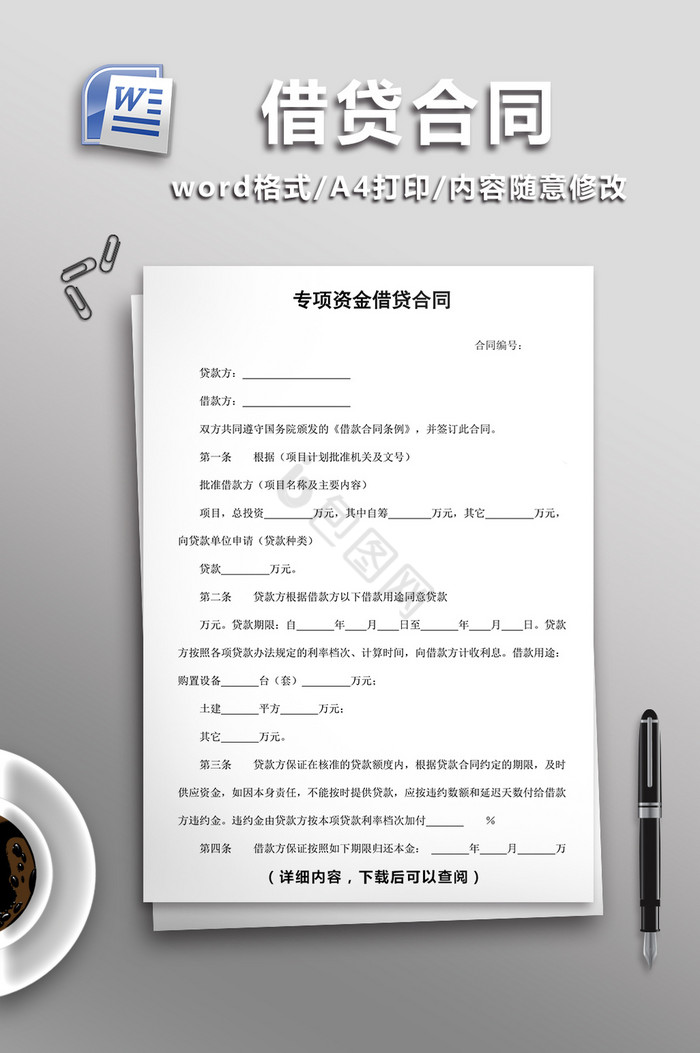 W
借贷合同
word格式/A4打印/内容随意修改
专项资金借贷合同
合同编号：
贷款方：____________________
借款方：____________________
双方共同遵守国务院颁发的《借款合同条例》，并签订此合同。
第一条　　根据（项目计划批准机关及文号）
批准借款方（项目名称及主要内容）
项目，总投资_________万元，其中自筹________万元，其它_________万元，
向贷款单位申请（贷款种类）
贷款_________万元。
第二条　　贷款方根据借款方以下借款用途同意贷款
万元。贷款期限：自_______年___月___日至_______年___月___日。贷款
方按照各项贷款办法规定的利率档次、计算时间，向借款方计收利息。借款用途：
购置设备_______台（套）_________万元；
土建_______平方_______万元；
其它_______万元。
第三条　　贷款方保证在核准的贷款额度内，根据贷款合同约定的期限，及时
供应资金，如因本身责任，不能按时提供贷款，应按违约数额和延迟天数付给借款
方违约金。违约金由贷款方按本项贷款利率档次加付_______　　%
第四条　　借款方保证按照如下期限归还本金：_______年____月_______万
（详细内容，下载后可以查阅）
包图网